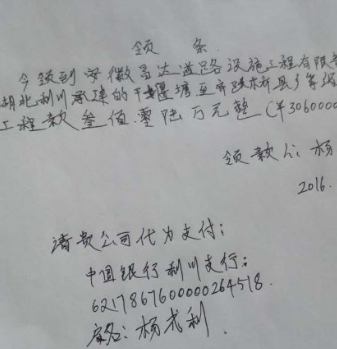 领 条
今领到安徽昌达道路设施工程有限
湖北利川承建的干堰塘至齐跃桥县乡等级
工程款叁佰零陆万元整(¥3060000
领款人:杨
2016.
请贵公司代为支付:
中国银行利川支行:
6217867600000264518.
户名:杨光利.